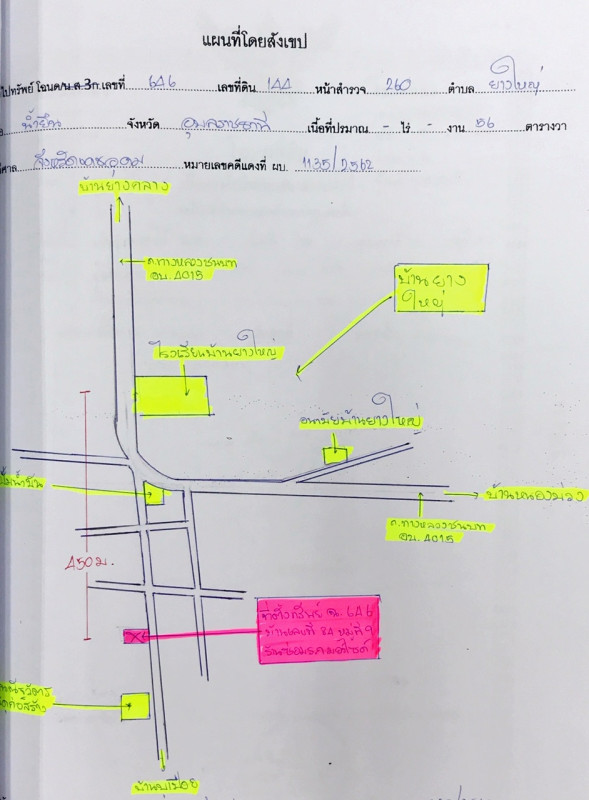 แผนที่โดยสังเขป
ไปทรัพย์ โฉนด/น.ส.3ก.เลขที่ 646 เลขที่ดิน 144 หน้าสำรวจ 260 ตำบล ยางใหญ่
น้ำยืน จังหวัด อุบลราชธานี เนื้อที่ประมาณ - ไร่ - งาน 56 ตารางวา
หมายเลขคดีแดงที่ ผบ. 1135/2562
บ้านยางกลาง
ถ.ทางหลวงชนบท
อบ. 4015
บ้านยาง
ใหญ่
โรงเรียนบ้านยางใหญ่
อนามัยบ้านยางใหญ่
ปั้มน้ำมัน
บ้านหนองม่วง
ถ.ทางหลวงชนบท
อบ. 4015
450 ม.
ที่ตั้งทรัพย์ ฉ. 646
บ้านเลขที่ 34 หมู่ที่ 9
ร้านซ่อมรถมอไซด์
วัสดุก่อสร้าง
บ้านบุเปือย